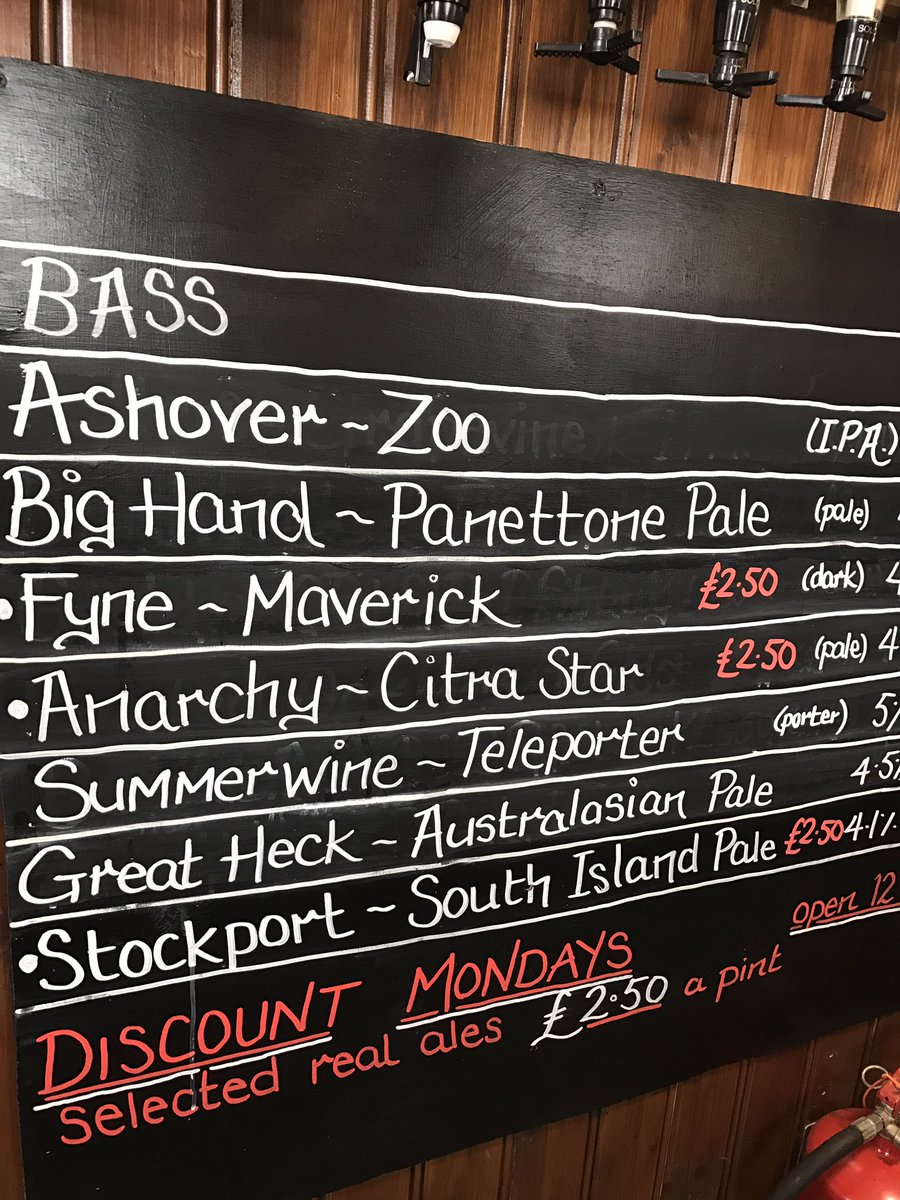 BASS
Ashover ~ Zoo (I.P.A.)
Big Hand ~ Panettone Pale (pale)
•Fyne ~ Maverick £2.50 (dark) 4
•Anarchy ~ Citra Star £2.50 (pale) 4
Summerwine ~ Teleporter (porter) 5%
Great Heck ~ Australasian Pale 4.5%
•Stockport ~ South Island Pale £2.50 4.1%
open 12
DISCOUNT MONDAYS
selected real ales £2.50 a pint